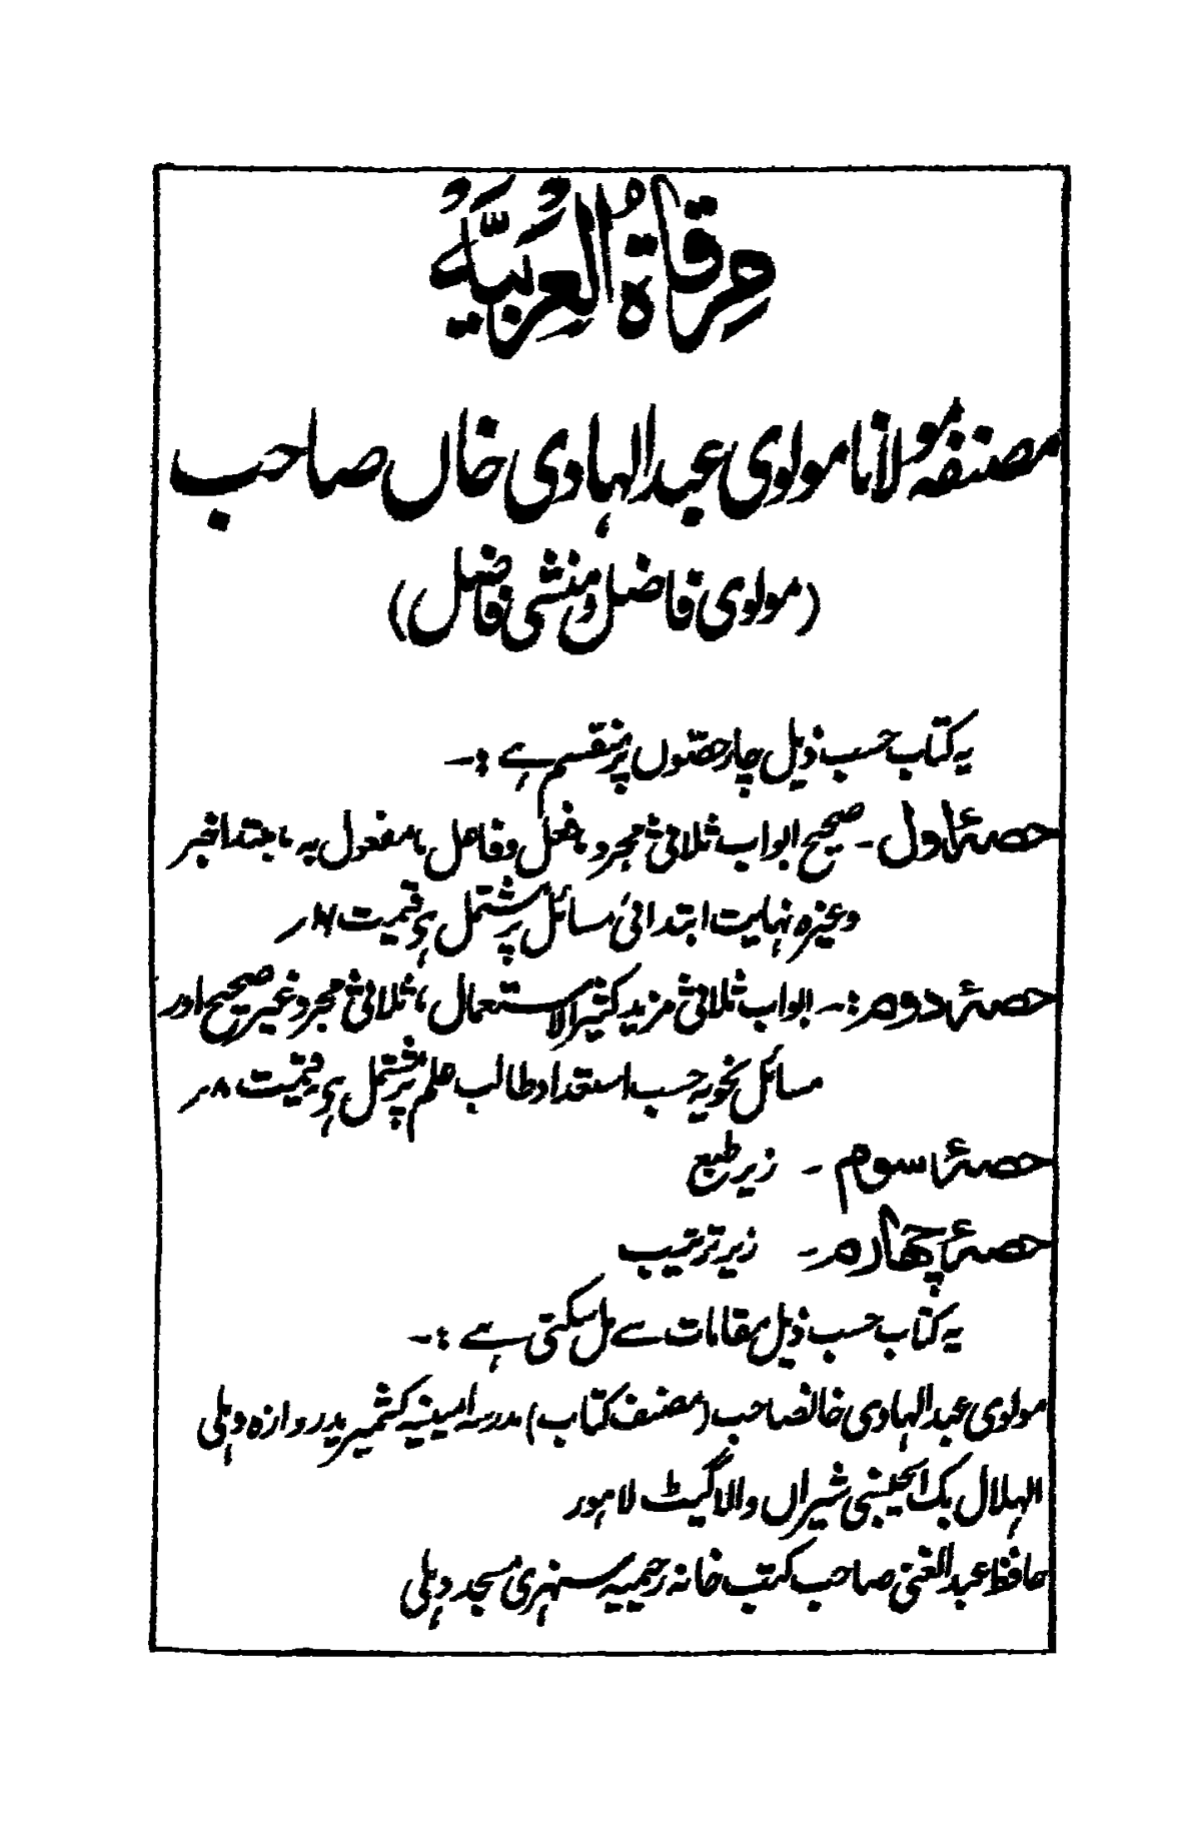 مرقاۃُ العربیَّہ
مصنفہ مولانا مولوی عبدالہادی خاں صاحب
(مولوی فاضل و منشی فاضل)
یہ کتاب حسب ذیل چار حصّوں پر منقسم ہے :۔
حصۂ اول ۔ صحیح ابواب ثلاثی مجرد، فعل و فاعل، مفعول بہ، مبتدا خبر
وغیرہ نہایت ابتدائی مسائل پر مشتمل ہی قیمت
حصۂ دوم :۔ ابواب ثلاثی مزید کثیر الاستعمال، ثلاثی مجرد غیر صحیح اور
مسائل نحویہ حسب استعداد طالب علم پر مشتمل ہی، قیمت ۸ر
حصۂ سوم ۔ زیر طبع
حصۂ چہارم ۔ زیر ترتیب
یہ کتاب حسب ذیل مقامات سے مل سکتی ہے :۔
مولوی عبدالہادی خانصاحب (مصنف کتاب) مدرسہ امینیہ کشمیری دروازہ دہلی
الہلال بک ایجنسی شیراں والا گیٹ لاہور
حافظ عبدالغنی صاحب کتب خانہ رحیمیہ سنہری مسجد دہلی